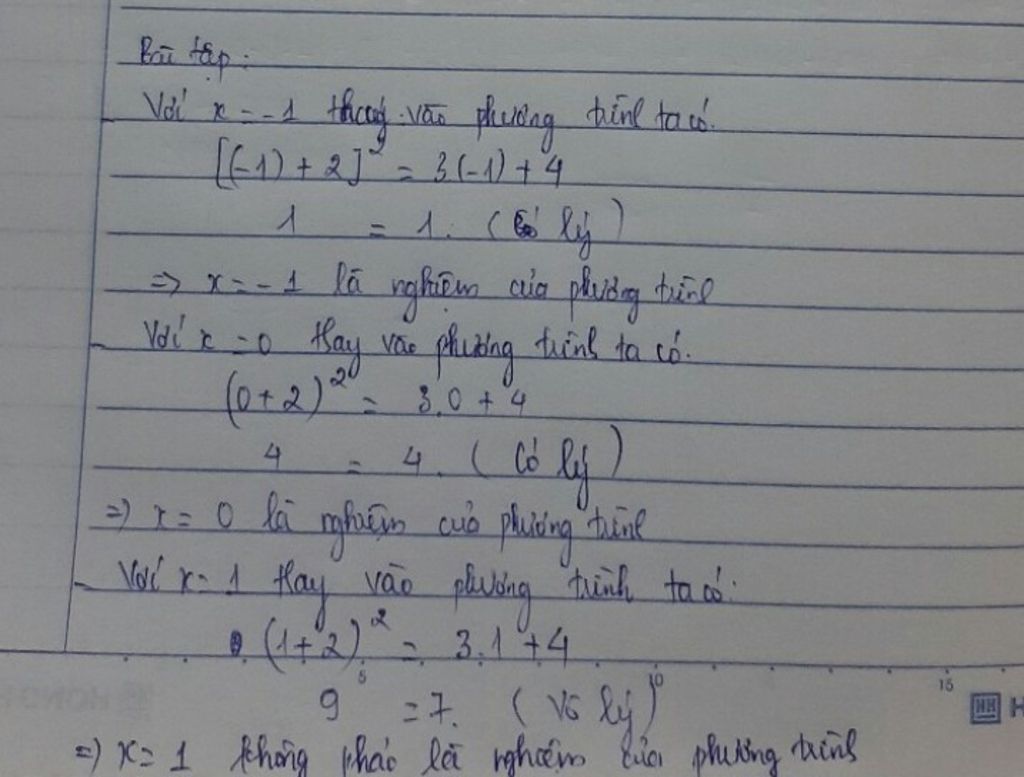 Bài tập:
Với x = -1 thay vào phương trình ta có.
[(-1) + 2]² = 3(-1) + 4
1 = 1. (có lý)
=> x = -1 là nghiệm của phương trình
Với x = 0 thay vào phương trình ta có.
(0 + 2)² = 3.0 + 4
4 = 4. (có lý)
=> x = 0 là nghiệm của phương trình
Với x = 1 thay vào phương trình ta có:
(1 + 2)² = 3.1 + 4
5 10 15
9 = 7. (Vô lý)
HH H
=> x = 1 không phải là nghiệm của phương trình